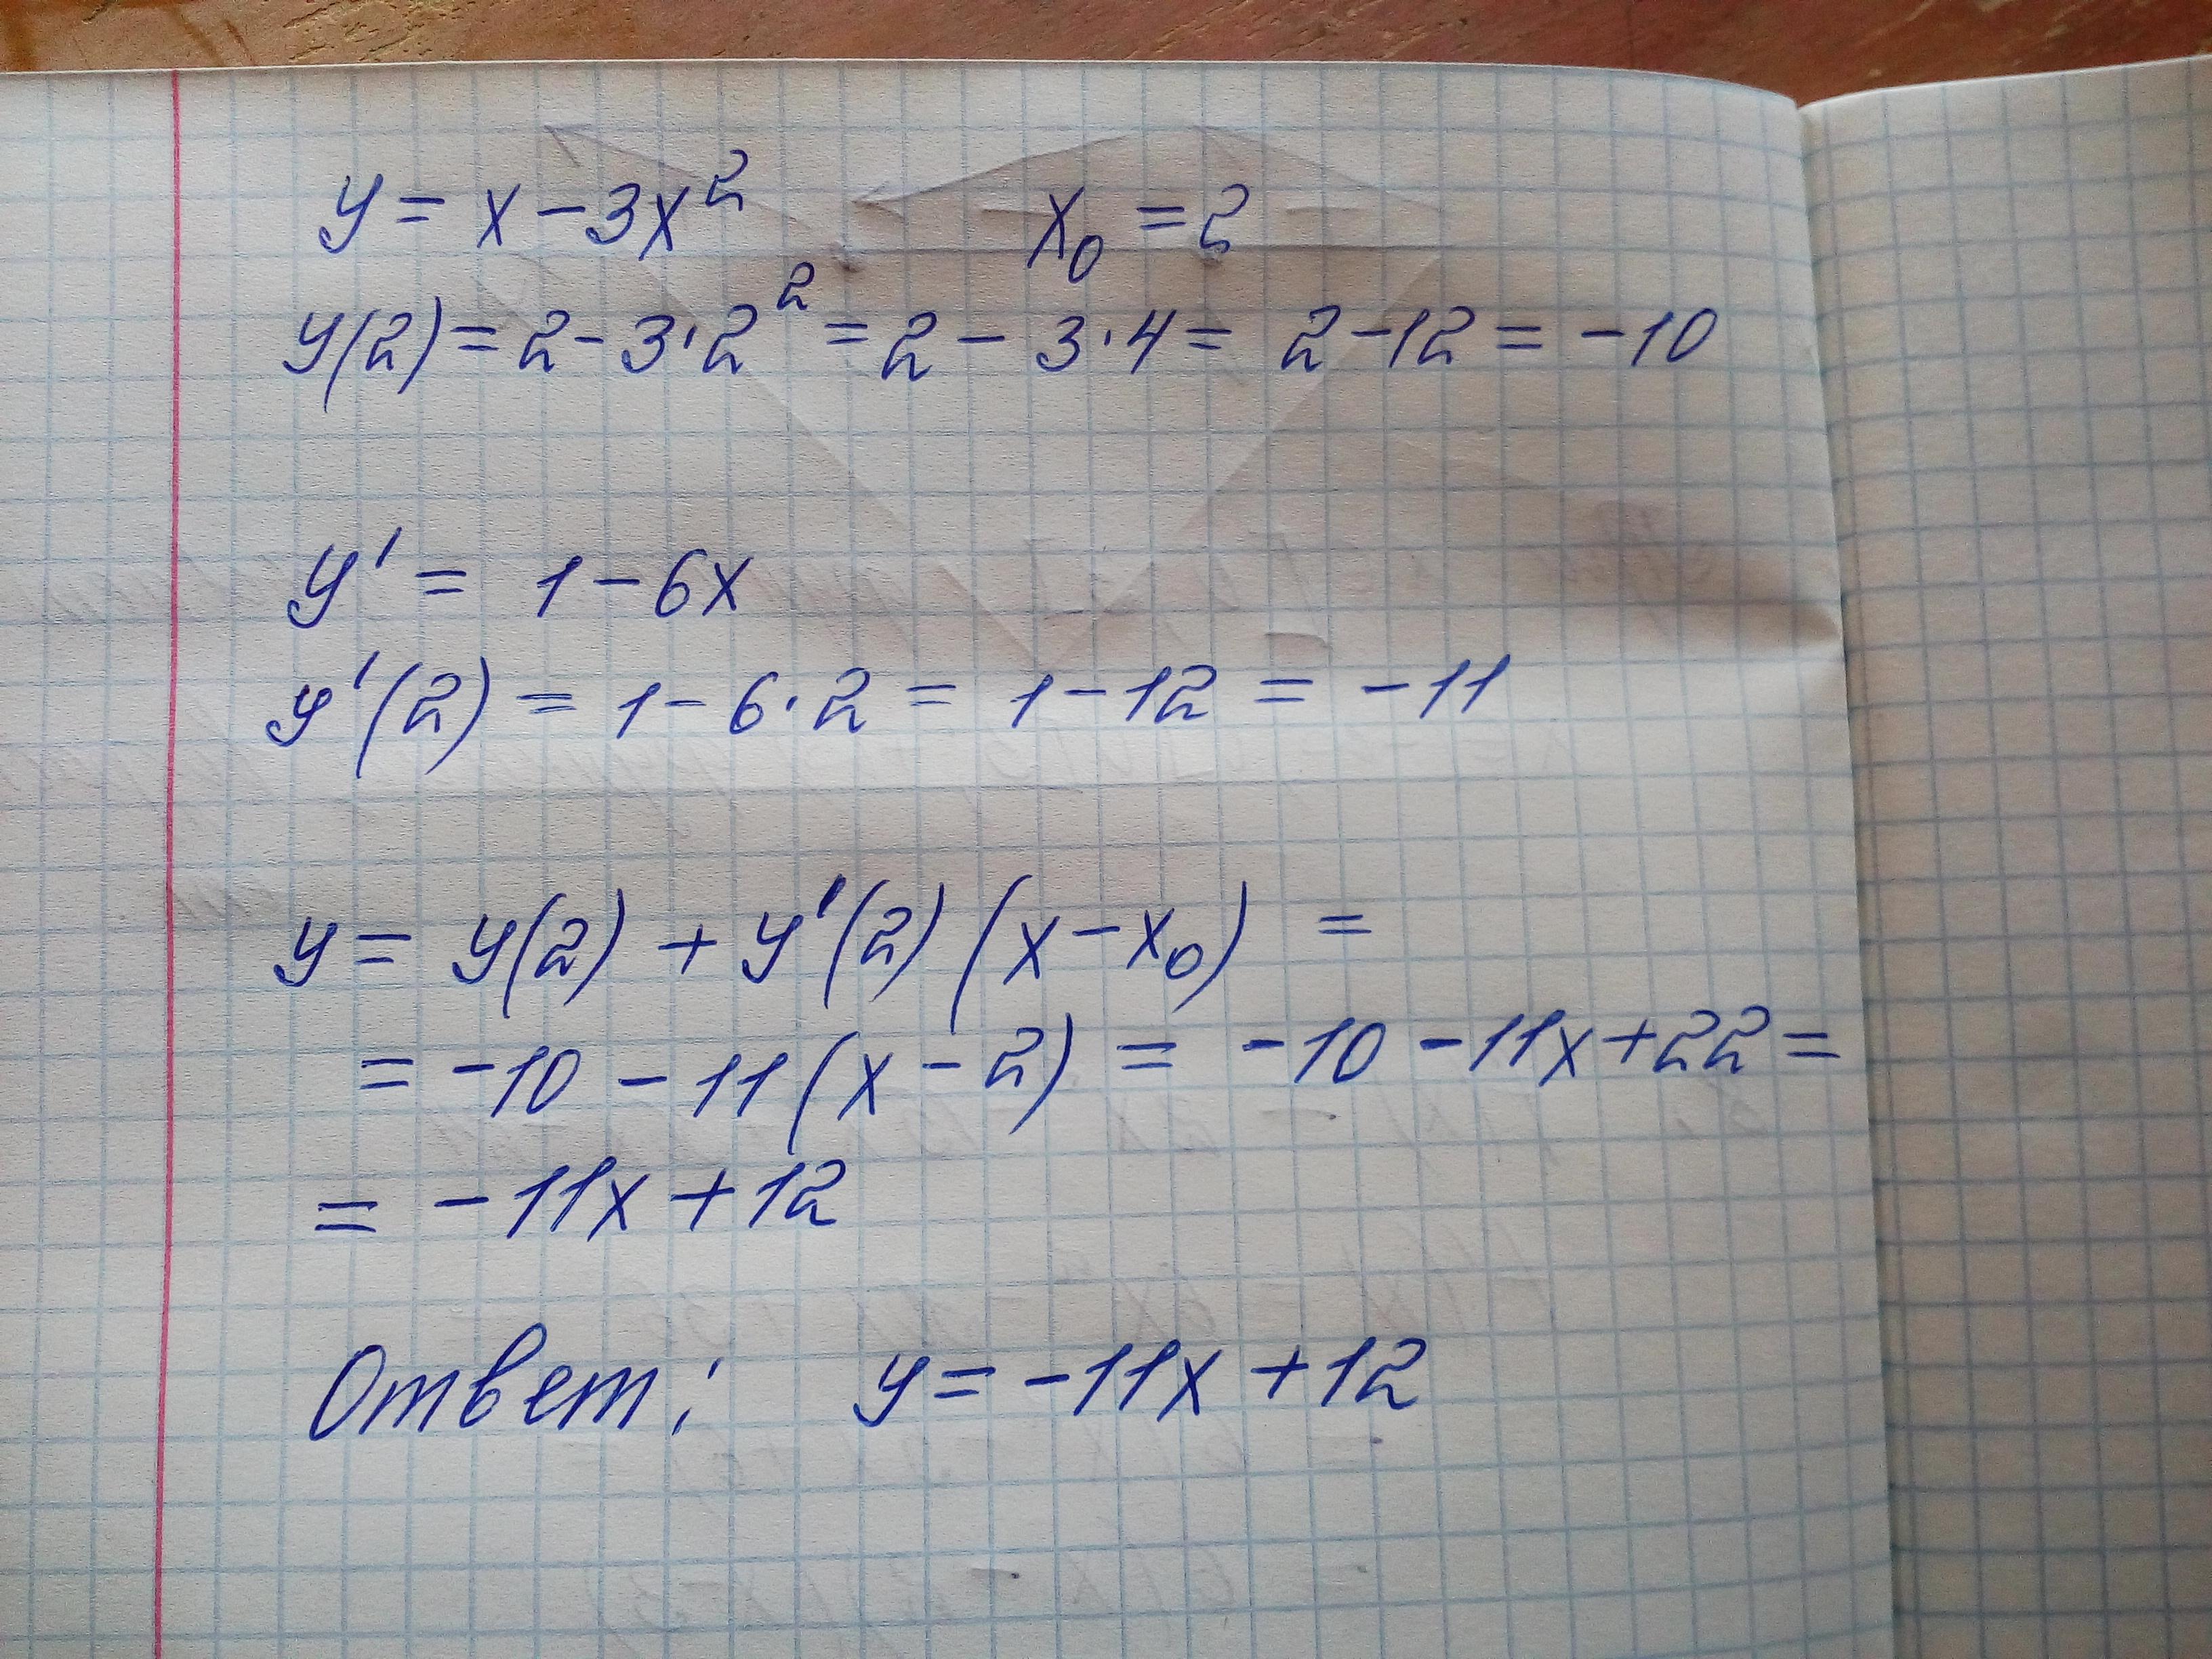 y = x - 3x² x₀ = 2
y(2) = 2 - 3·2² = 2 - 3·4 = 2 - 12 = -10
y' = 1 - 6x
y'(2) = 1 - 6·2 = 1 - 12 = -11
y = y(2) + y'(2)(x - x₀) =
= -10 - 11(x - 2) = -10 - 11x + 22 =
= -11x + 12
Ответ: y = -11x + 12